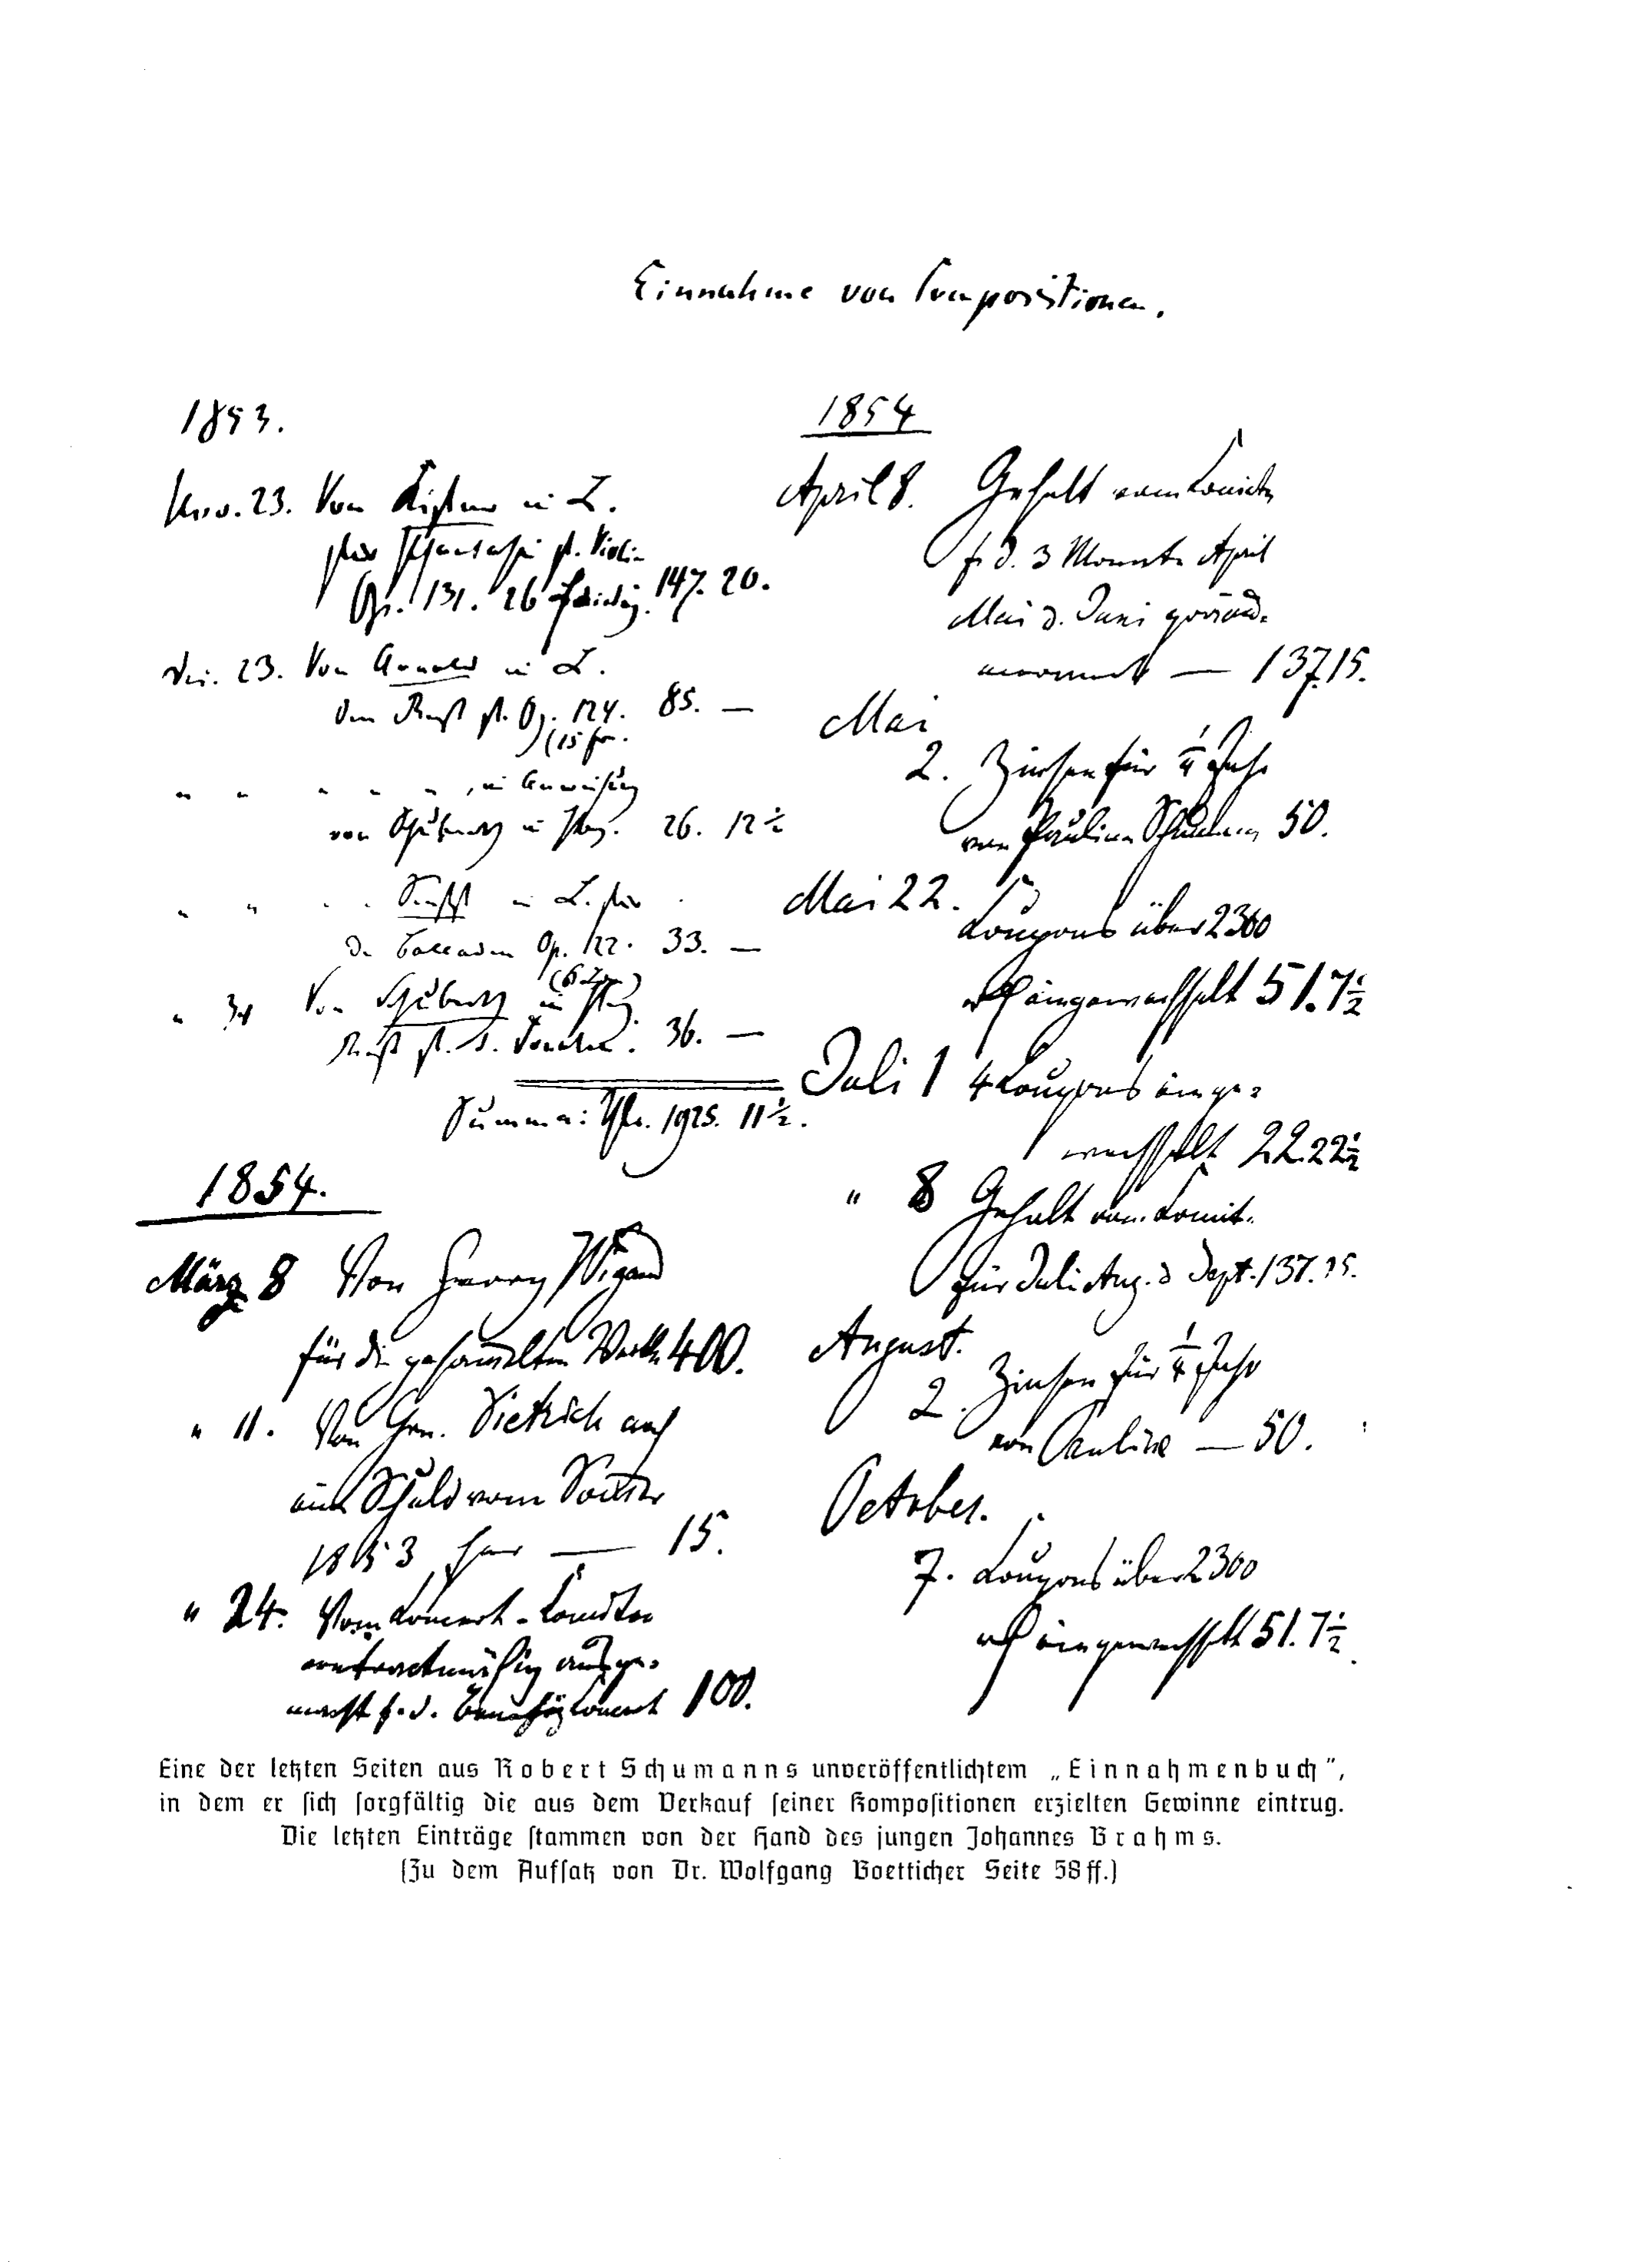 Einnahme von Compositionen.
1853.
Nov. 23. Von Kistner in L.
für Phantasie f. Violin
Op. 131. 26 147. 20.
Dec. 23. Von Arnold in L.
den Rest f. Op. 124. 85. —
(15 fr.
" " " " " , in Anweisung
von Schuberth in Hbg. 26. 12 ½
" " " " Senff in L. für
die Balladen Op. 122. 33. —
" Von Schuberth in Hbg.
Rest f. d. 36. —
Summa: Thr. 1925. 11 ½.
1854.
März 8 Von Herrn Wigand
für die gesammelten Werke 400.
" 11. Von Hrn. Dietrich auf
eine Schuld vom Sommer
1853 her — 15.
" 24. Vom Concert-Comitee
contractmäßig ausge-
macht f. d. Benefizconcert 100.
1854
April 8. Gehalt vom Comite
f. d. 3 Monate April
Mai u. Juni pränu-
merando — 137.15.
Mai
2. Zinsen für ¼ Jahr
von Pauline Schumann 50.
Mai 22. Coupons über 2300
eingewechselt 51.7½
Juli 1 4 Coupons einge-
wechselt 22.22½
" 8 Gehalt vom Comit.
für Juli Aug. u Sept. 137.15.
August.
2. Zinsen für ¼ Jahr
von Pauline — 50.
October.
7. Coupons über 2300
eingewechselt 51.7½
Eine der letzten Seiten aus Robert Schumanns unveröffentlichtem „Einnahmenbuch“,
in dem er sich sorgfältig die aus dem Verkauf seiner Kompositionen erzielten Gewinne eintrug.
Die letzten Einträge stammen von der Hand des jungen Johannes Brahms.
(Zu dem Aufsatz von Dr. Wolfgang Boetticher Seite 58 ff.)